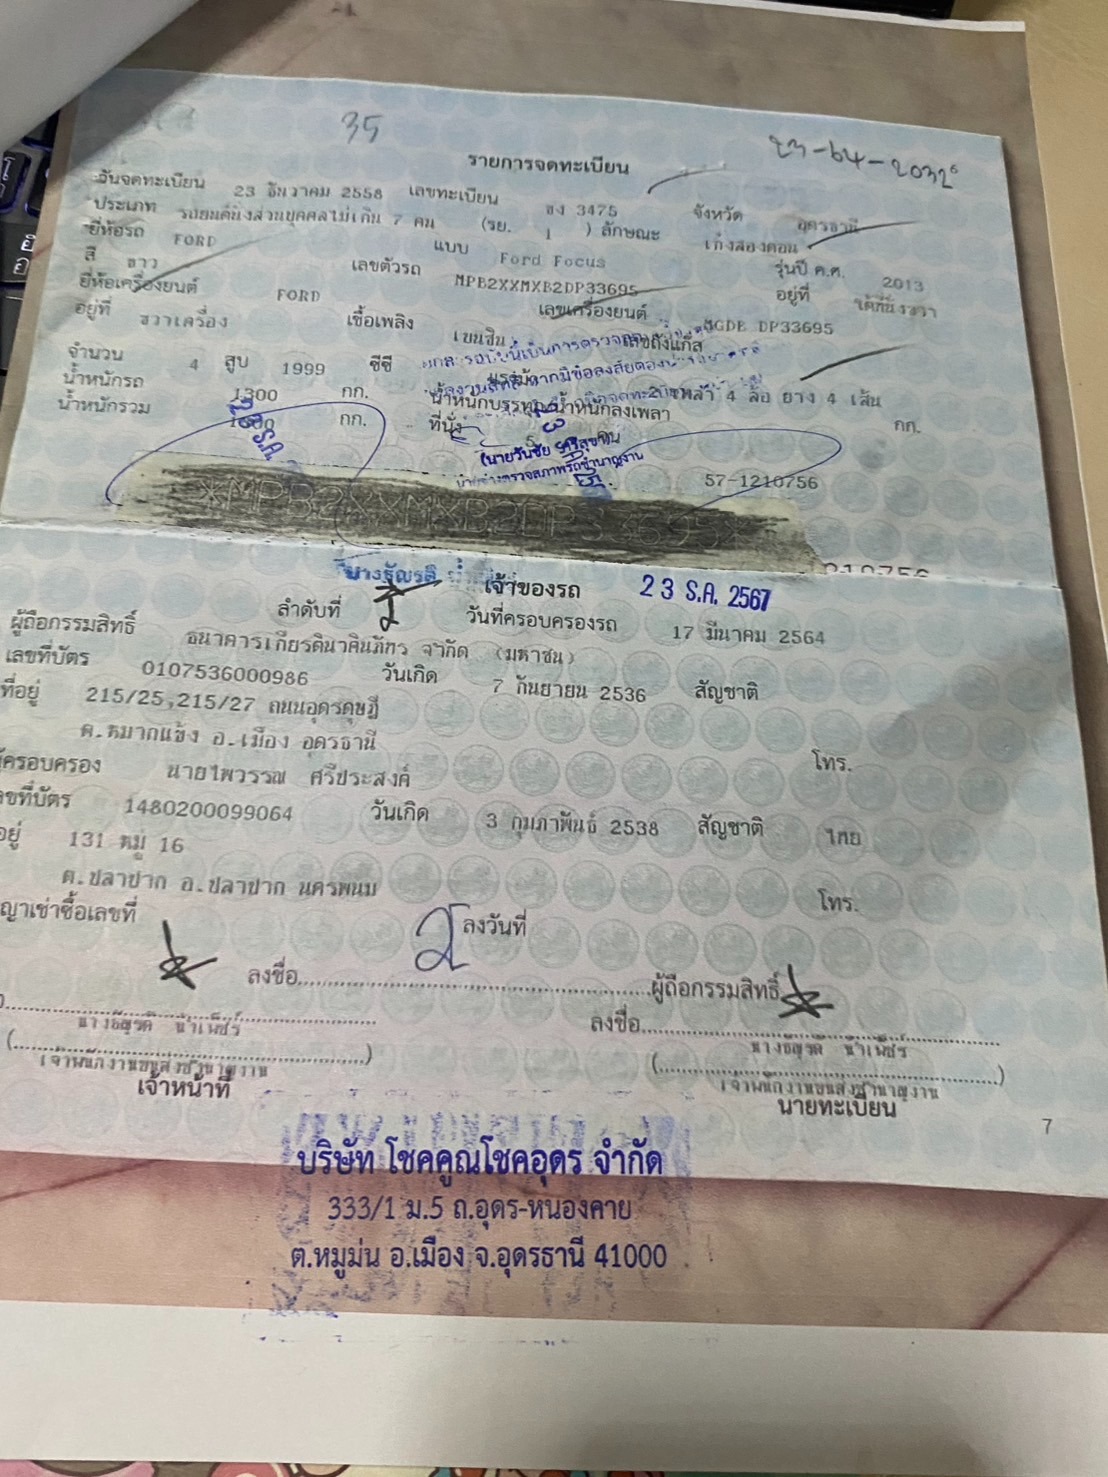 35
23-64-20326
รายการจดทะเบียน
วันจดทะเบียน 23 ธันวาคม 2558 เลขทะเบียน ขง 3475 จังหวัด อุดรธานี
ประเภท รถยนต์นั่งส่วนบุคคลไม่เกิน 7 คน (รย. 1 ) ลักษณะ เก๋งสองตอน
ยี่ห้อรถ FORD แบบ Ford Focus รุ่นปี ค.ศ. 2013
สี ขาว เลขตัวรถ MPB2XXMXB2DP33695 อยู่ที่ ใต้ที่นั่งขวา
ยี่ห้อเครื่องยนต์ FORD เลขเครื่องยนต์ MGDE DP33695
อยู่ที่ ขวาเครื่อง เชื้อเพลิง เบนซิน เลขถังแก๊ส
จำนวน 4 สูบ 1999 ซีซี แรงม้า 2 เพลา 4 ล้อ ยาง 4 เส้น
น้ำหนักรถ 1300 กก. น้ำหนักบรรทุก/น้ำหนักลงเพลา กก.
น้ำหนักรวม กก. ที่นั่ง 5 คน
(นายวันชัย ศรีสุขา)
นายช่างตรวจสภาพรถชำนาญงาน
57-1210756
เจ้าของรถ 23 ธ.ค. 2567
ลำดับที่ 2 วันที่ครอบครองรถ 17 มีนาคม 2564
ผู้ถือกรรมสิทธิ์ ธนาคารเกียรตินาคินภัทร จำกัด (มหาชน)
เลขที่บัตร 0107536000986 วันเกิด 7 กันยายน 2536 สัญชาติ
ที่อยู่ 215/25,215/27 ถนนอุดรดุษฎี
ต.หมากแข้ง อ.เมือง อุดรธานี โทร.
ครอบครอง นายไพวรรณ ศรีประสงค์
เลขที่บัตร 1480200099064 วันเกิด 3 กุมภาพันธ์ 2538 สัญชาติ ไทย
อยู่ 131 หมู่ 16
ต.ปลาปาก อ.ปลาปาก นครพนม โทร.
ญาเช่าซื้อเลขที่ ลงวันที่
ลงชื่อ ผู้ถือกรรมสิทธิ์
ลงชื่อ
นางธัญรดี น้ำเพ็ชร์ นางธัญรดี น้ำเพ็ชร์
เจ้าพนักงานขนส่งชำนาญงาน เจ้าพนักงานขนส่งชำนาญงาน
เจ้าหน้าที่ นายทะเบียน
7
บริษัท โชคคูณโชคอุดร จำกัด
333/1 ม.5 ถ.อุดร-หนองคาย
ต.หมูม่น อ.เมือง จ.อุดรธานี 41000